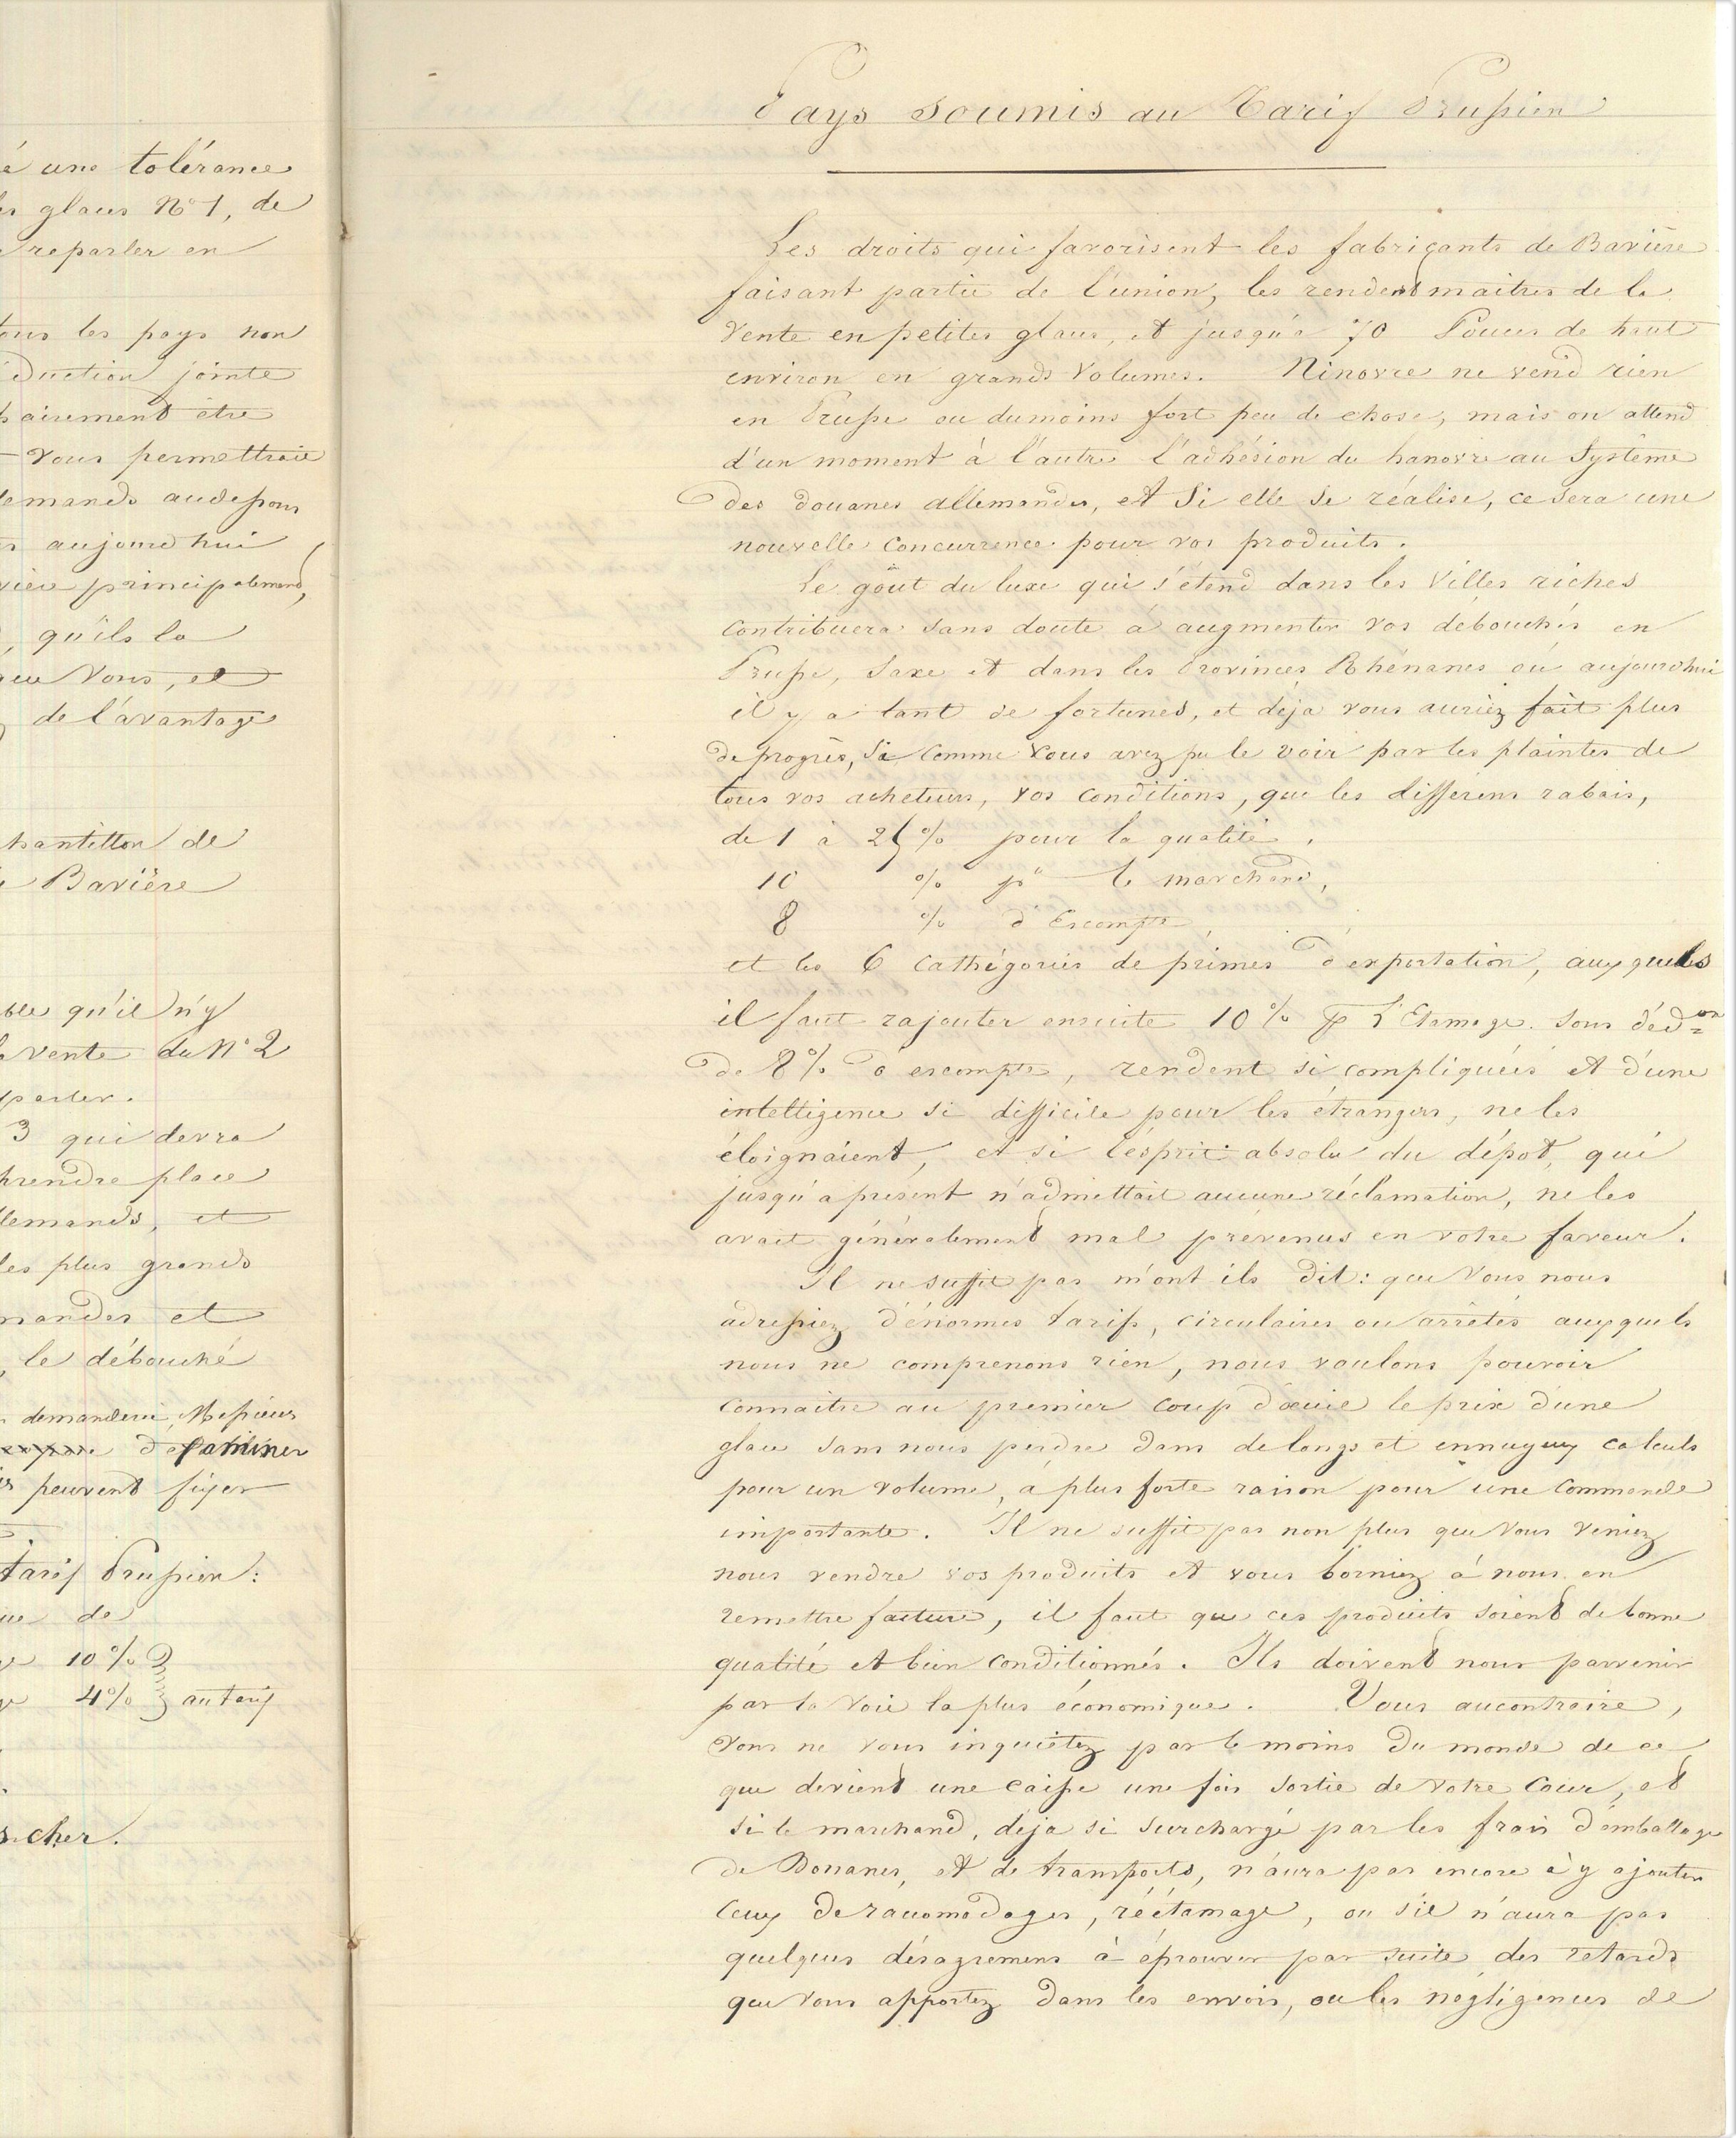 é une tolérance
glaces N° 1, de
reparler en
tous les pays non
éduction jointe
airement être
vous permettrait
lemands audessous
aujourd'hui
principalement,
, qu'ils la
que vous, et
de l'avantage
hantillon de
Bavière
ble qu'il n'y
vente du N° 2
parler.
3 qui devra
prendre place
llemands, et
les plus grands
mandes et
, le débouché
demanderai, Messieurs
d'examiner
peuvent fixer
tarif Prussien :
de
10 %
4 % } au tarif
cher.
Pays soumis au Tarif Prussien
Les droits qui favorisent les fabriçants de Bavière
faisant partie de l'union, les rendent maitres de la
vente en petites glaces, et jusqu'à 70 Pouces de haut
environ en grands volumes. Ninovre ne vend rien
en Prusse ou dumoins fort peu de chose, mais on attend
d'un moment à l'autre l'adhésion du hanovre au Système
des douanes allemandes, et si elle se réalise, ce sera une
nouvelle concurrence pour vos produits.
Le goût du luxe qui s'étend dans les villes riches
contribuera sans doute à augmenter vos débouchés en
Prusse, Saxe et dans les Provinces Rhénanes où aujourdhui
il y a tant de fortunes, et déja vous auriez fait plus
de progrès, si comme vous avez pu le voir par les plaintes de
tous vos acheteurs, vos conditions, que les différens rabais,
de 1 à 25 % pour la qualité,
10 % pr le marchand,
8 % d'Escompte,
et les 6 cathégories de primes d'exportation, auxquels
il faut rajouter ensuite 10 % p l'Etamage. sous déd.on
de 8 % d'escompte, rendent si compliquées et d'une
intelligence si difficile pour les étrangers, ne les
éloignaient, et si l'ésprit absolu du dépot, qui
jusqu'a présent n'admettait aucune réclamation, ne les
avait généralement mal prévenus en votre faveur.
Il ne suffit pas m'ont ils dit : que vous nous
adressiez d'énormes tarifs, circulaires ou arrêtés auxquels
nous ne comprenons rien, nous voulons pouvoir
connaitre au premier coup d'oeuil le prix d'une
glace sans nous perdre dans de longs et ennuyeux calculs
pour un volume, à plus forte raison pour une commande
importante. Il ne suffit pas non plus que vous veniez
nous vendre vos produits et vous borniez à nous en
remettre facture, il faut que ces produits soient de bonne
qualité et bien conditionnés. Ils doivent nous parvenir
par la voie la plus économique. Vous aucontraire,
vous ne vous inquiétez pas le moins du monde de ce
que devient une caisse une fois sortie de votre Cour, et
si le marchand, déja si surchargé par les frais d'emballage
de Douanes, et de transports, n'aura pas encore à y ajouter
ceux de racomodages, réétamage, ou s'il n'aura pas
quelques désagremens à éprouver par suite des retards
que vous apportez dans les envois, ou les négligences de